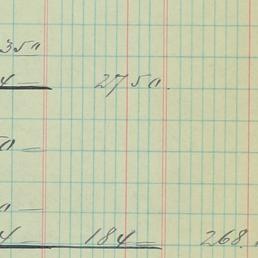 350
4 — 2750.
0 —
0 —
4 — 184 — 268.